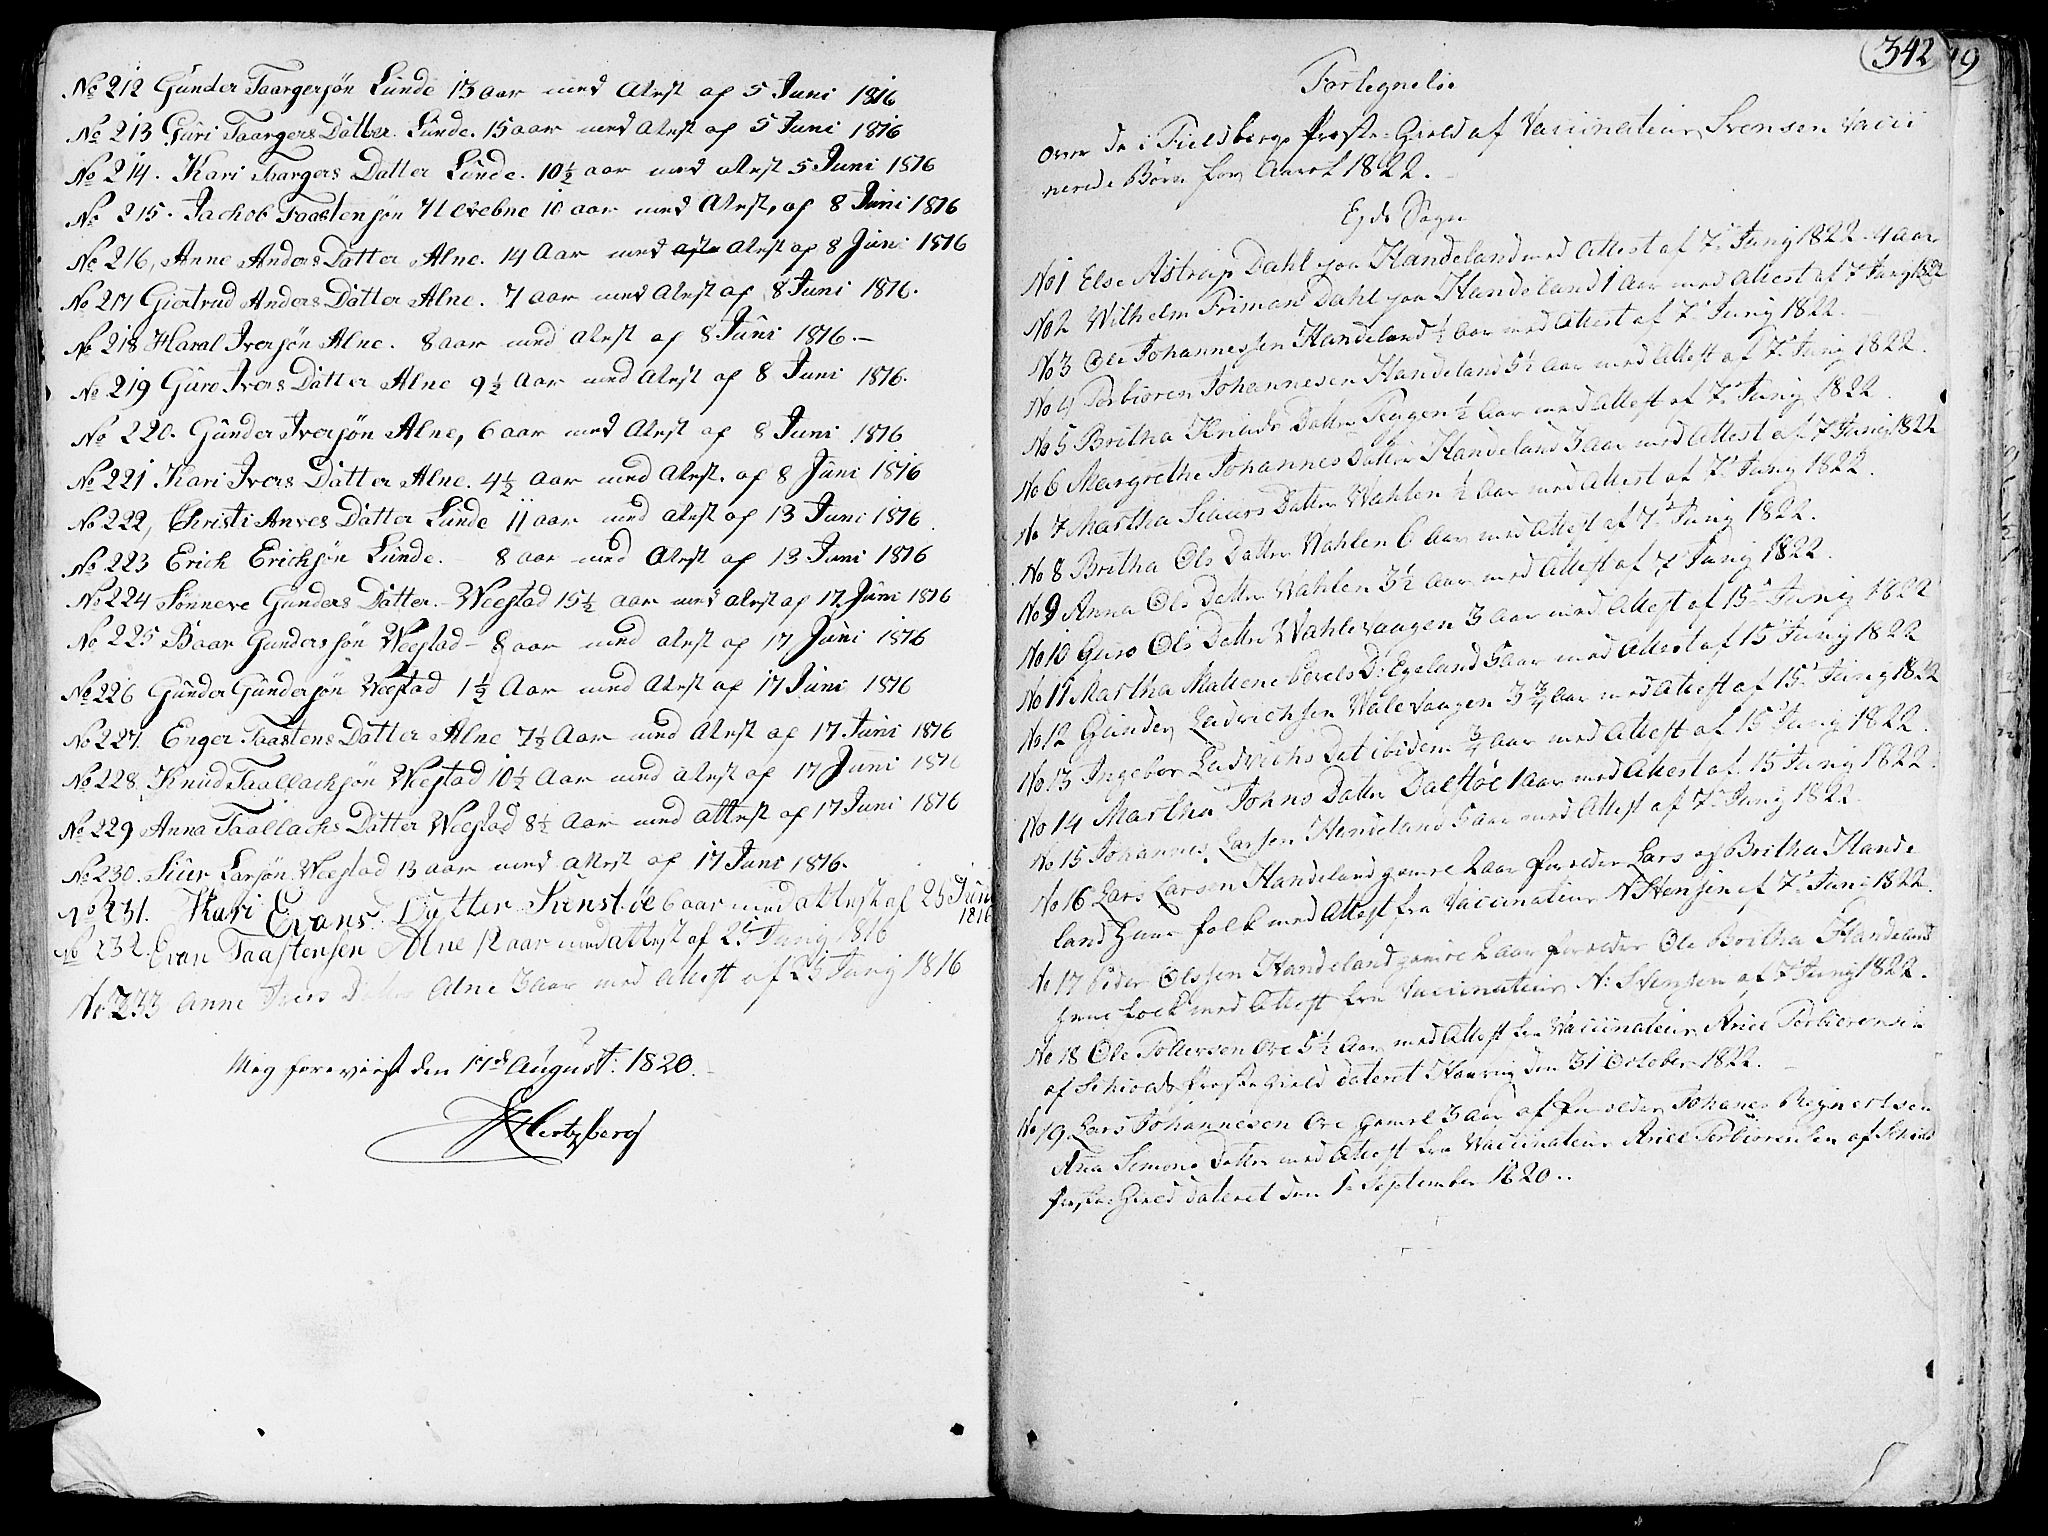 No 212 Gunder Taargersøn Lunde 13 aar med Atest af 5 Juni 1816
No 213 Guri Taargers Datter Lunde. 15 aar med Atest af 5 Juni 1816
No 214. Kari Taargers Datter Lunde. 10½ aar med atest 5 Juni 1816
No 215. Jachob Taastensøn 10 aar med Atest, af 8 Juni 1816
No 216, Anne Anders Datter Alne. 14 Aar med Atest af 8 Juni 1816
No 217 Giertrud Anders Datter Alne. 7 aar med Atest af 8 Juni 1816.
No 218 Haral Iversøn Alne. 8 aar med Atest af 8 Juni 1816.—
No 219 Gure Ivers Datter Alne 9½ Aar med Atest af 8 Juni 1816.
No 220. Gunder Iversøn Alne, 6 aar med Atest af 8 Juni 1816
No 221. Kari Ivers Datter Alne. 4½ Aar med Atest. af 8 Juni 1816
No 222, Christi Datter Lunde 11 aar med atest af 13 Juni 1816.
No 223 Erich Erichsøn Lunde. — 8 aar med Atest af 13 Juni 1816
No 224 Sønneve Gunders Datter. Weestad 15½ aar med atest af 17 Juni 1816
No 225 Baar Gunderssøn Weestad — 8 aar med atest af 17 Juni 1816
No 226 Gunder Gundersøn Weestad 1½ Aar med Atest af 17 Juni 1816
No 227. Enger Taastens Datter Alne 7½ Aar med Atest af 17 Juni 1816
No 228. Knud Taallachsøn Weestad 10½ Aar med atest af 17 Juni 1816
No 229 Anna Taallachs Datter Weestad 8½ Aar med attest af 17 Juni 1816
No 230. Siur Larsøn Weestad 13 aar med attest af 17 Juni 1816.
No 231. Kari Evans Dotter 6 aar med attest af 25 Juni 1816
No 232. Evan Taastensen Alne 12 aar med attest af 25 Junij 1816
No 233 Anne Ivers Datter Alne 3 aar med Attest af 25 Junij 1816
Mig foreviist den 17de August: 1820.
Hertzberg
342
19
Fortegnelse
over de i Fieldbergs Præste Gield af Vaccinateur Svensen Vacci
nerede Børn for Aaret 1822.
Egds Sogn
No 1 Else Astrup Dahl paa Handeland med Attest af 7de Junij 1822. 4 Aar
No 2 Wilhelm Friman Dahl paa Handeland 1 Aar med Attest af 7de Junij 1822
No 3 Ole Johannessen Handeland ½ Aar med Attest af 7de Junij 1822.
No 4 Torbiøren Johannesen Handeland 5½ Aar med Attest af 7de Junij 1822.
No 5 Britha Knuds Datter ½ Aar med Attest af 7de Junij 1822.
No 6 Margrethe Johannes Datter Handeland 3 Aar med Attest af 7de Junij 1822
No 7 Martha Siurs Datter Wahlen ½ Aar med Attest af 7de Junij 1822.
No 8 Britha Ols Datter Wahlen 6 Aar med Attest af 7de Junij 1822.
No 9 Anna Ols Datter Wahlen 3½ Aar med Attest af 7de Junij 1822.
No 10 Guro Ols Datter Wahlevaagen 3 Aar med Attest af 15de Junij 1822
No 11 Martha Mallene Peders D: Egeland 5 Aar med Attest af 15de Junij 1822
No 12 Gunder Ludvichsen Walevaagen 3¾ Aar med Attest af 15de Junij 1822
No 13 Ingebor Ludvichs Dat ibidem ¾ Aar med Attest af 15de Junij 1822.
No 14 Martha Johns Datter Dalstøe 1 Aar med Attest af 15 Junij 1822.
No 15 Johannes Larsen Handeland 5 Aar med Attest af 7de Junij 1822.
No 16 Lars Larsen Handeland gamle 2 aar forælder Lars og Britha Hande
land folk med Attest fra Vaccinateur N: Svensen af 7de Junij 1822.
No 17 Peder Olssen Handeland gamle 2 Aar forælder Ole Britha Handeland
med Attest fra Vaccinateur N: Svensen af 7de Junij 1822.
No 18 Ole Tollevsen Øre 5½ Aar med Attest fra Vaccinateur Torbiørensen
af Schiolds Præste Gield dateret den 31 October 1822.
No 19 Lars Johannesen Øre gamle 3 Aar af forælder Johanes Reinertsen
Ana Simons Datter med Attest fra Vaccinateur Torbiørensen af Schiold
Præste Gield dateret den 1 September 1820..